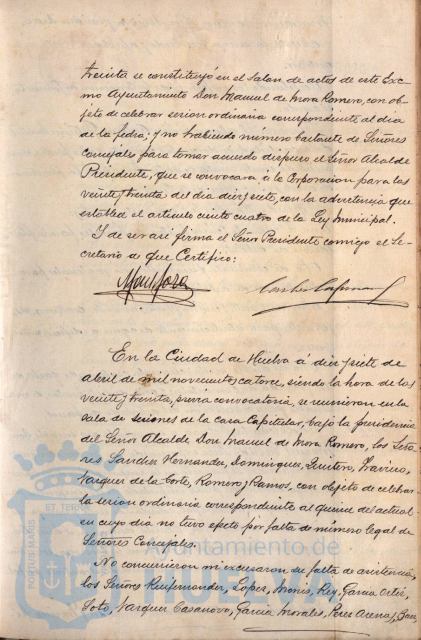 treinta se constituyó en el Salon de actos de este Exc-
mo Ayuntamiento Don Manuel de Mora Romero, con ob-
jeto de celebrar sesion ordinaria correspondiente al dia
de la fecha; y no habiendo número bastante de Señores
Concejales para tomar acuerdo dispuso el Señor Alcalde
Presidente, que se convocara á la Corporacion para las
veinte y treinta del dia diez y siete, con la advertencia que
establece el articulo ciento cuatro de la Ley Municipal.
Y de ser asi firma el Señor Presidente conmigo el Se-
cretario de que Certifico:
En la Ciudad de Huelva á diez y siete de
abril de mil novecientos catorce, siendo la hora de las
veinte y treinta, previa convocatoria, se reunieron en la
sala de sesiones de la casa Capitular, bajo la presidencia
del Señor Alcalde Don Manuel de Mora Romero, los Seño-
res Sanchez Hernandez, Dominguez, Quintero, Travieso,
Vazquez de la Corte, Romero y Ramos, con objeto de celebrar
la sesion ordinaria correspondiente al quince del actual
en cuyo dia no tuvo efecto por falta de número legal de
Señores Concejales.
No concurrieron ni excusaron su falta de asistencia,
los Señores Ruifernandez, Lopez, Monis, Rey, Garcia
Soto, Vazquez Casanova, Garcia Morales, Perez Arenas,
Ayuntamiento de
HUELVA
PORTUS MARIS
ET TERRÆ